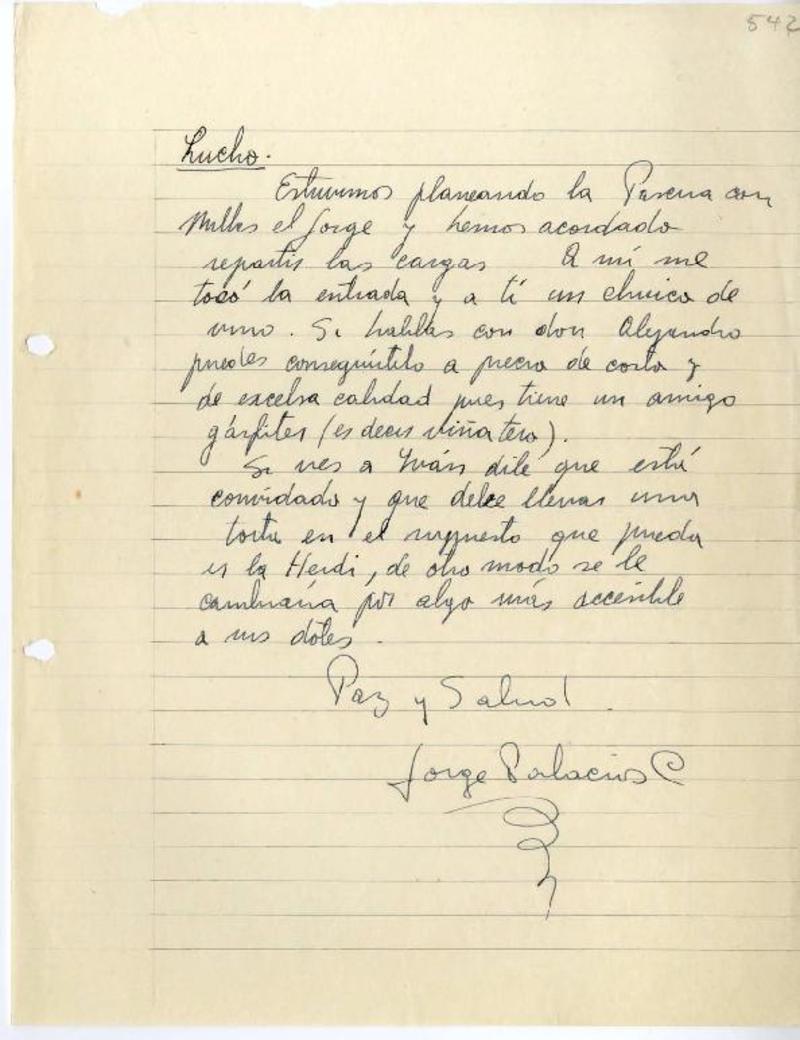 542
Lucho.
Estuvimos planeando la Pascua con
el Jorge y hemos acordado
repartir las cargas A mí me
tocó la entrada y a tí un chuico de
vino. Si hablas con don Alejandro
puedes conseguírtelo a precio de costo y
de excelsa calidad pues tiene un amigo
(es decir viñatero).
Si ves a Iván dile que está
convidado y que debe llevar una
torta en el supuesto que pueda
ir la Heidi, de otro modo se le
cambiaría por algo más accesible
a sus dotes.
Paz y Salud.
Jorge Palacios C